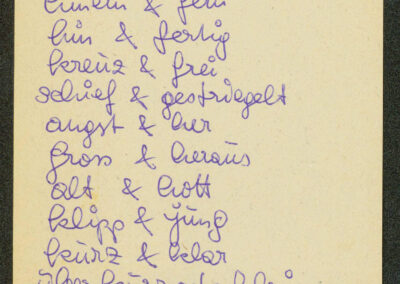 & fein
hin & fertig
kreuz & frei
schief & gestriegelt
angst & her
gross & heraus
alt & hott
klipp & jung
kurz & klar
über kurz